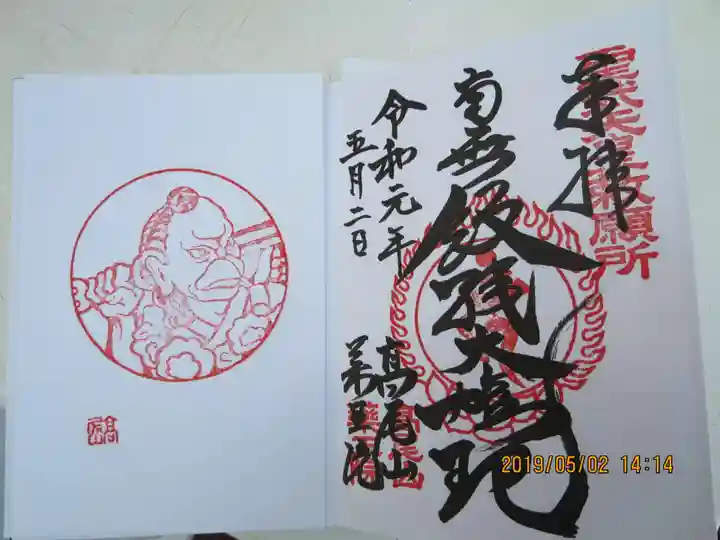 奉拝
聖武天皇勅願所
南無飯縄大権現
令和元年
五月二日
髙尾山
薬王院
2019/05/02 14:14